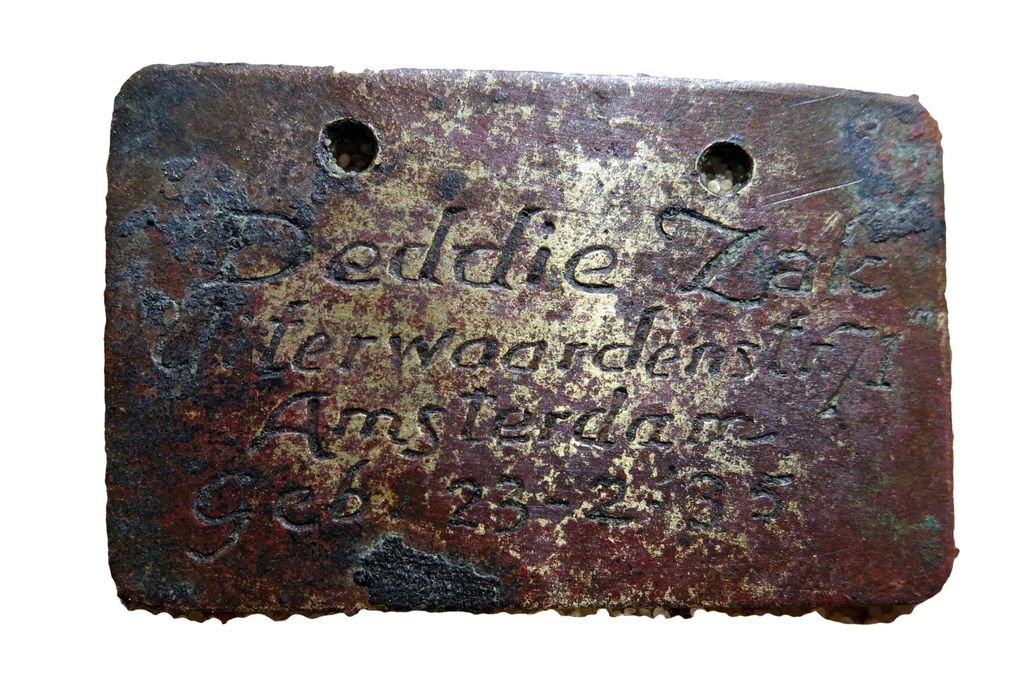 Deddie Zak
Uiterwaardenstr 71
Amsterdam
Geb 23-2-35